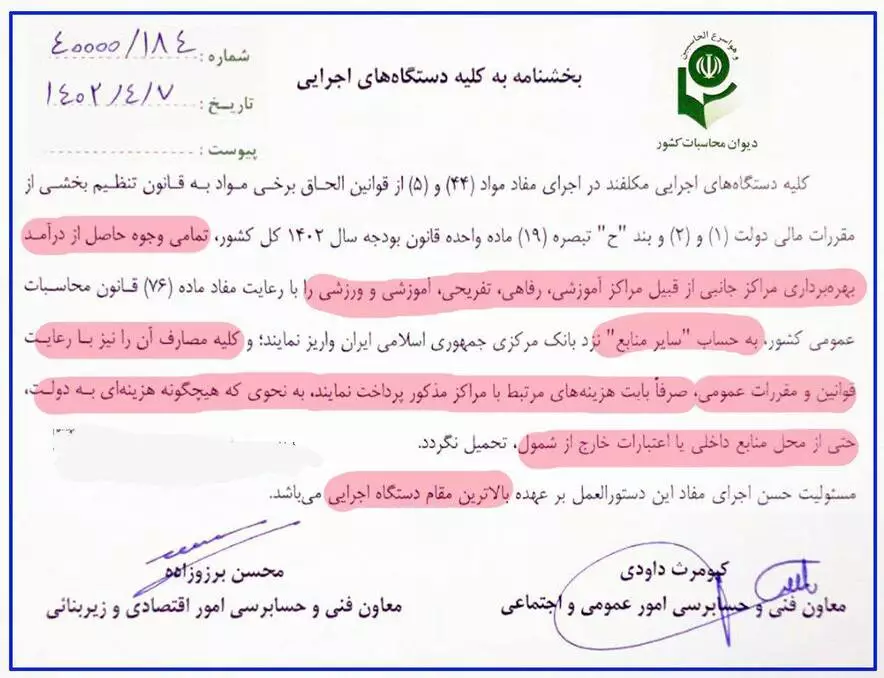 و هو اسرع الحاسبین
دیوان محاسبات کشور
شماره : ۴۰۰۰۰/۱۸۴
تاریخ : ۱۴۰۲/۴/۷
پیوست :
بخشنامه به کلیه دستگاه‌های اجرایی
کلیه دستگاه‌های اجرایی مکلفند در اجرای مفاد مواد (۴۴) و (۵) از قوانین الحاق برخی مواد به قانون تنظیم بخشی از
مقررات مالی دولت (۱) و (۲) و بند "ح" تبصره (۱۹) ماده واحده قانون بودجه سال ۱۴۰۲ کل کشور، تمامی وجوه حاصل از درآمد
بهره‌برداری مراکز جانبی از قبیل مراکز آموزشی، رفاهی، تفریحی، آموزشی و ورزشی را با رعایت مفاد ماده (۷۶) قانون محاسبات
عمومی کشور، به حساب "سایر منابع" نزد بانک مرکزی جمهوری اسلامی ایران واریز نمایند؛ و کلیه مصارف آن را نیز با رعایت
قوانین و مقررات عمومی، صرفاً بابت هزینه‌های مرتبط با مراکز مذکور پرداخت نمایند، به نحوی که هیچگونه هزینه‌ای به دولت،
حتی از محل منابع داخلی یا اعتبارات خارج از شمول، تحمیل نگردد.
مسئولیت حسن اجرای مفاد این دستورالعمل بر عهده بالاترین مقام دستگاه اجرایی می‌باشد.
کیومرث داودی
معاون فنی و حسابرسی امور عمومی و اجتماعی
محسن برزوزاده
معاون فنی و حسابرسی امور اقتصادی و زیربنائی